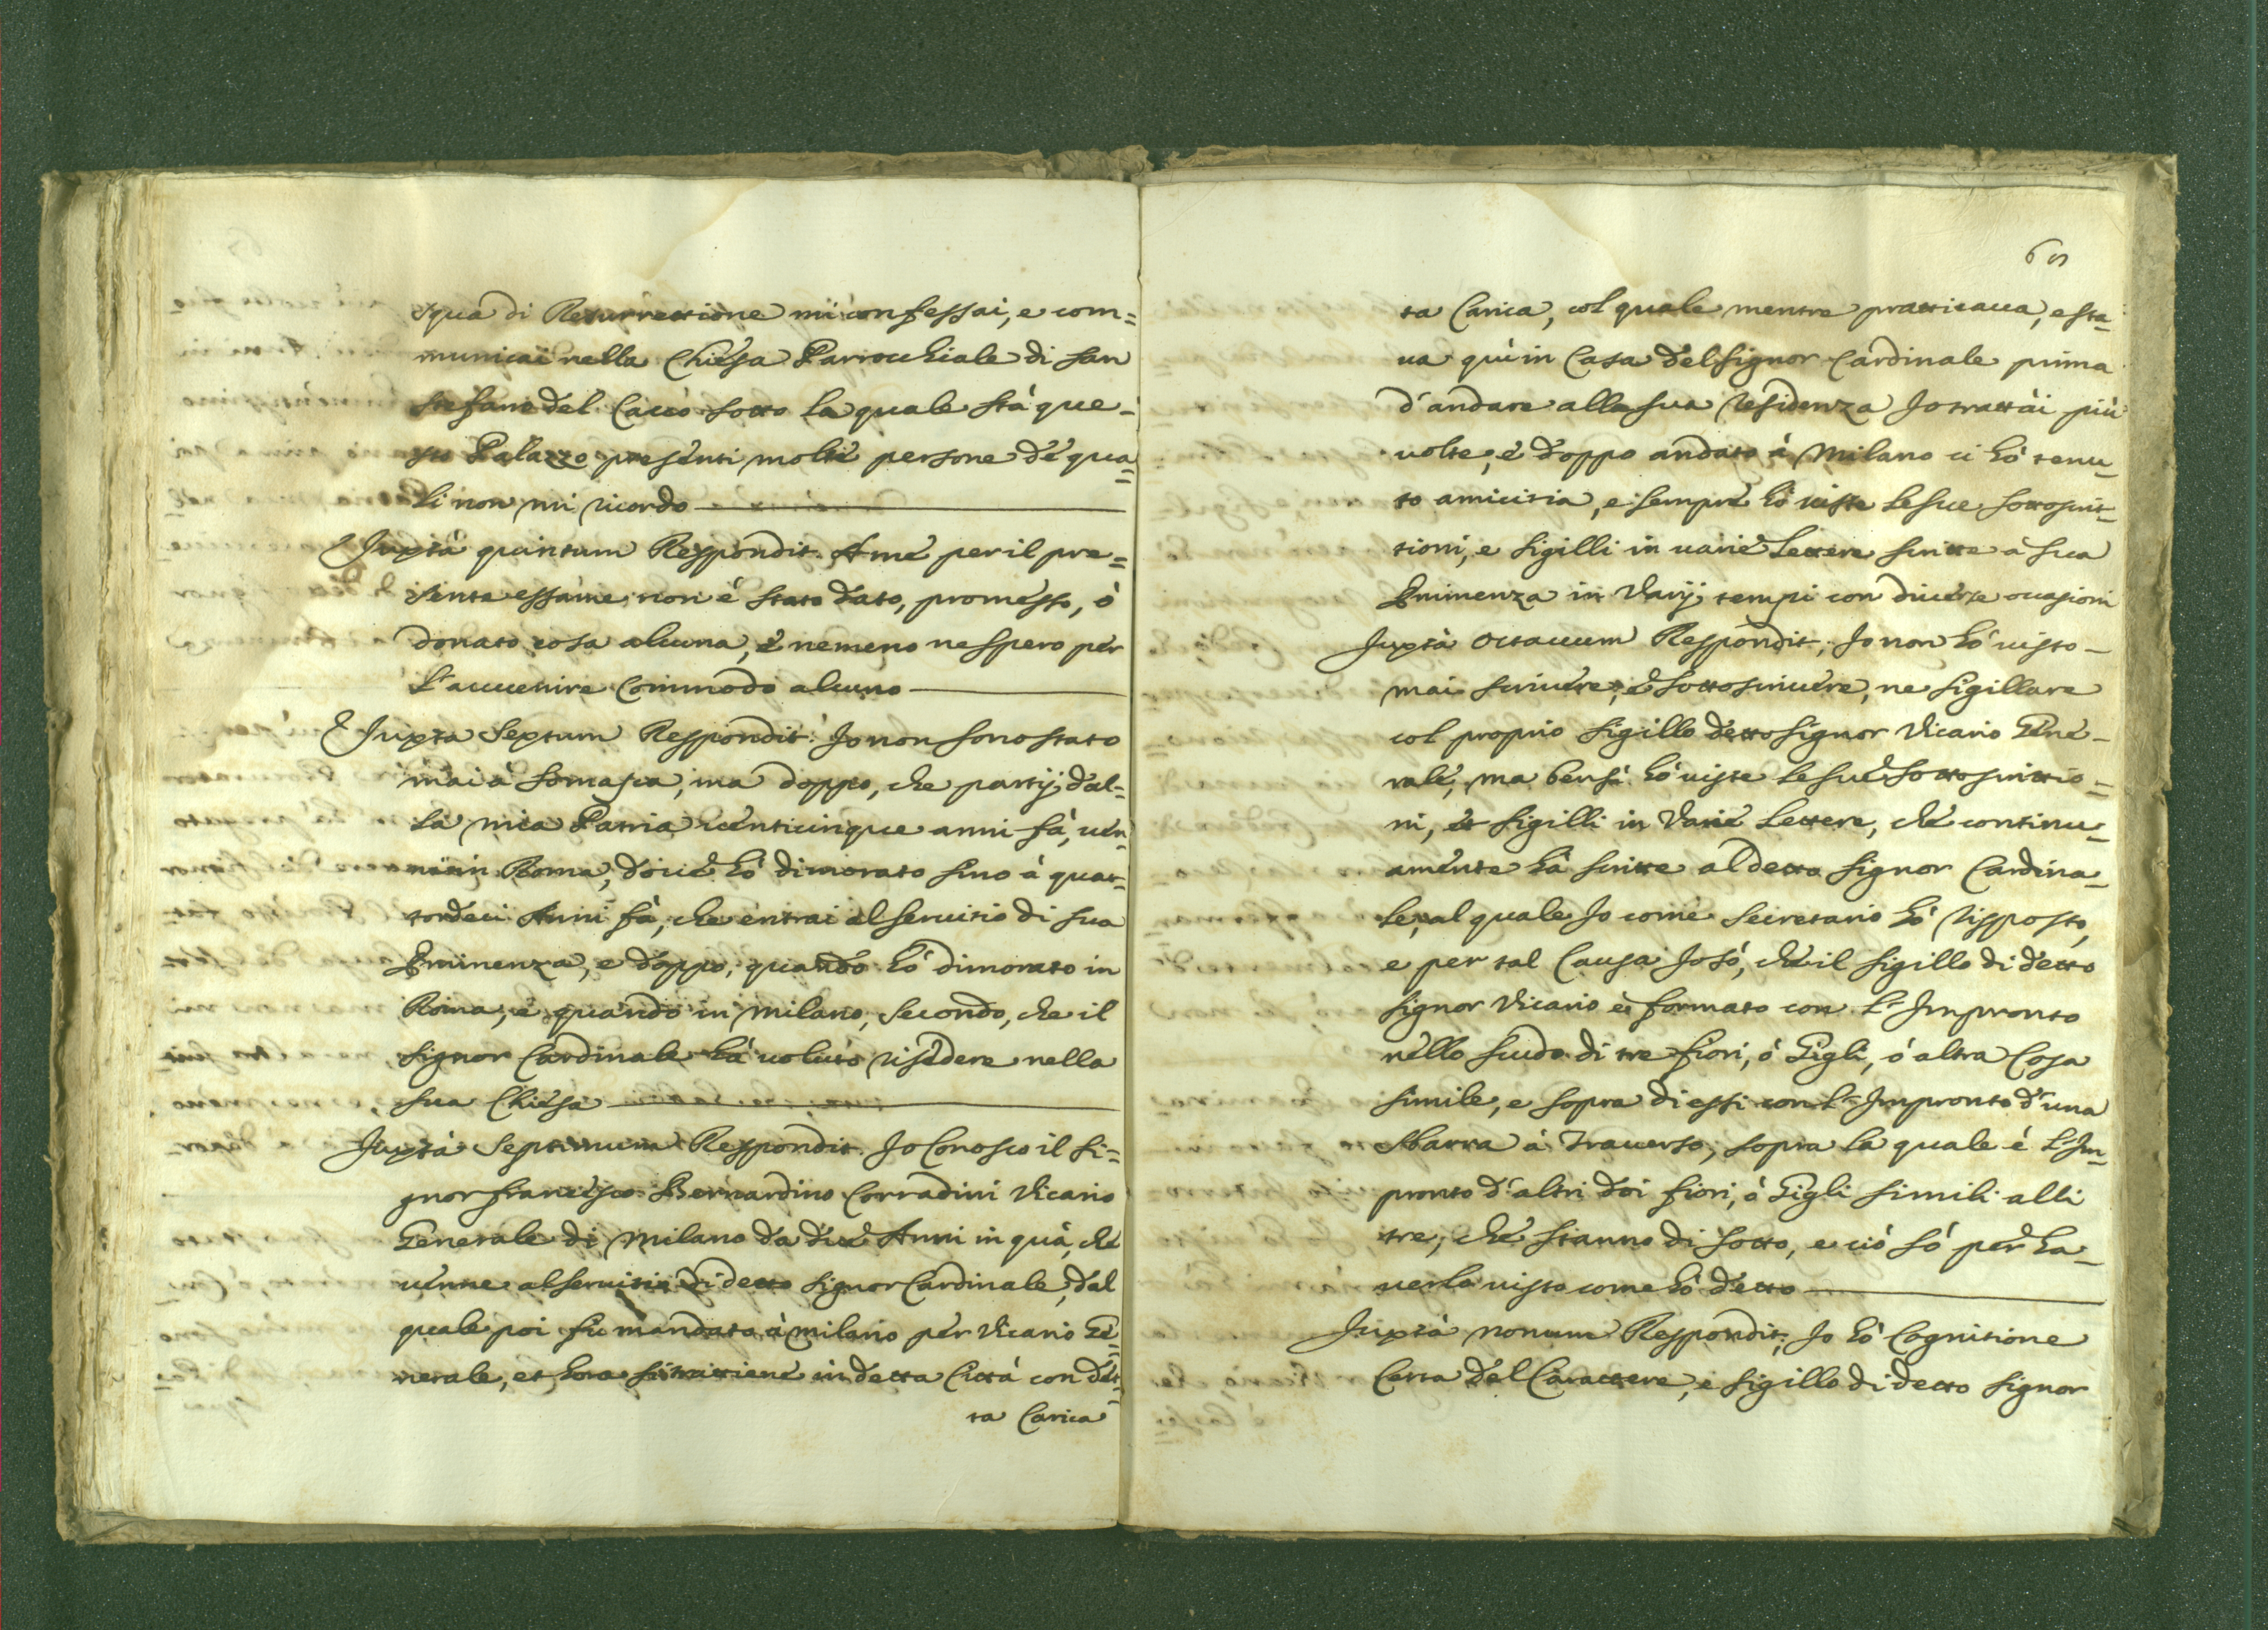 squa di Resurrettione mi confessai, e com=
municai nella Chiesa Parrochiale di San
Stefano del Cacco sotto la quale stà que=
sto Palazzo presenti molte persone de qua=
li non mi ricordo
Juxtà quintum Respondit. A me per il pre=
sente essame non è stato dato, promesso, ò
donato cosa alcuna, è nemeno ne spero per
l'auuenire Commodo alcuno
Juxta Sextum Respondit. Jo non sono stato
mai à Somasca, ma doppo, che partij dal=
la mia Patria uenticinque anni fà, uen=
ni in Roma, doue hò dimorato sino à quat=
tordeci Anni fà, che entrai al seruitio di sua
Eminenza, e doppo, quando hò dimorato in
Roma, e quando in Milano, secondo, che il
Signor Cardinale hà voluto risedere nella
sua Chiesa
Juxtà Septimum Respondit. Jo Conosco il Si=
gnor Francesco Bernardino Corradini Vicario
Generale di Milano da due Anni in quà, che
uenne al seruitio di detto Signor Cardinale, dal
quale poi fù mandato à Milano per Vicario Ge=
nerale, et hora si trattiene in detta Città con det=
ta Carica
65
ta Carica, col quale mentre pratticaua, e sta=
ua quì in Casa del Signor Cardinale prima
d'andare alla sua Residenza Jo trattài più
uolte, e doppo andato à Milano ci hò tenu=
to amicitia, e sempre hò uiste le sue sottoscrit=
tioni, e sigilli in uarie Lettere scritte à sua
Eminenza in Varij tempi con diuerse occasioni
Juxtà Octauum Respondit, Jo non hò uisto
mai scriuere, e sottoscriuere, ne sigillare
col proprio sigillo detto Signor Vicario Gene=
rale, ma bensì hò uiste le sue sottoscrittio=
ni, et sigilli in Varie Lettere, che continu=
amente hà scritte al detto Signor Cardina=
le, al quale Jo come Secretario hò risposto,
e per tal Causa Jo sò, che il sigillo di detto
Signor Vicario è formato con l'Impronto
nello scudo di tre fiori, ò Gigli, ò altra Cosa
simile, e sopra di essi con l'Impronto d'una
Sbarra à Trauerso, sopra la quale è l'Im=
pronto d'altri doi fiori, ò Gigli simili alli
tre, che stanno di sotto, e ciò sò per ha=
uerlo uisto come hò detto
Juxtà nonum Respondit, Jo hò Cognitione
Certa del Carattere, e sigillo di detto Signor